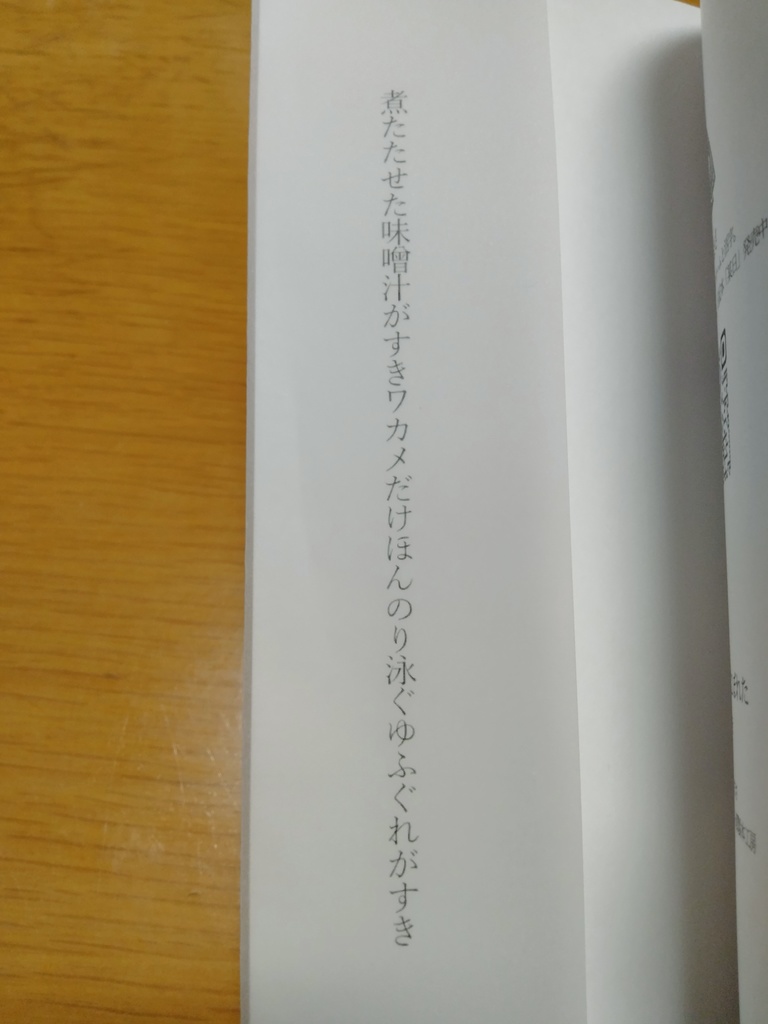 煮たたせた味噌汁がすきワカメだけほんのり泳ぐゆふぐれがすき